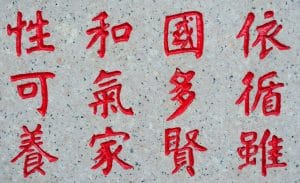 依循雖
國多賢
和氣家
性可養